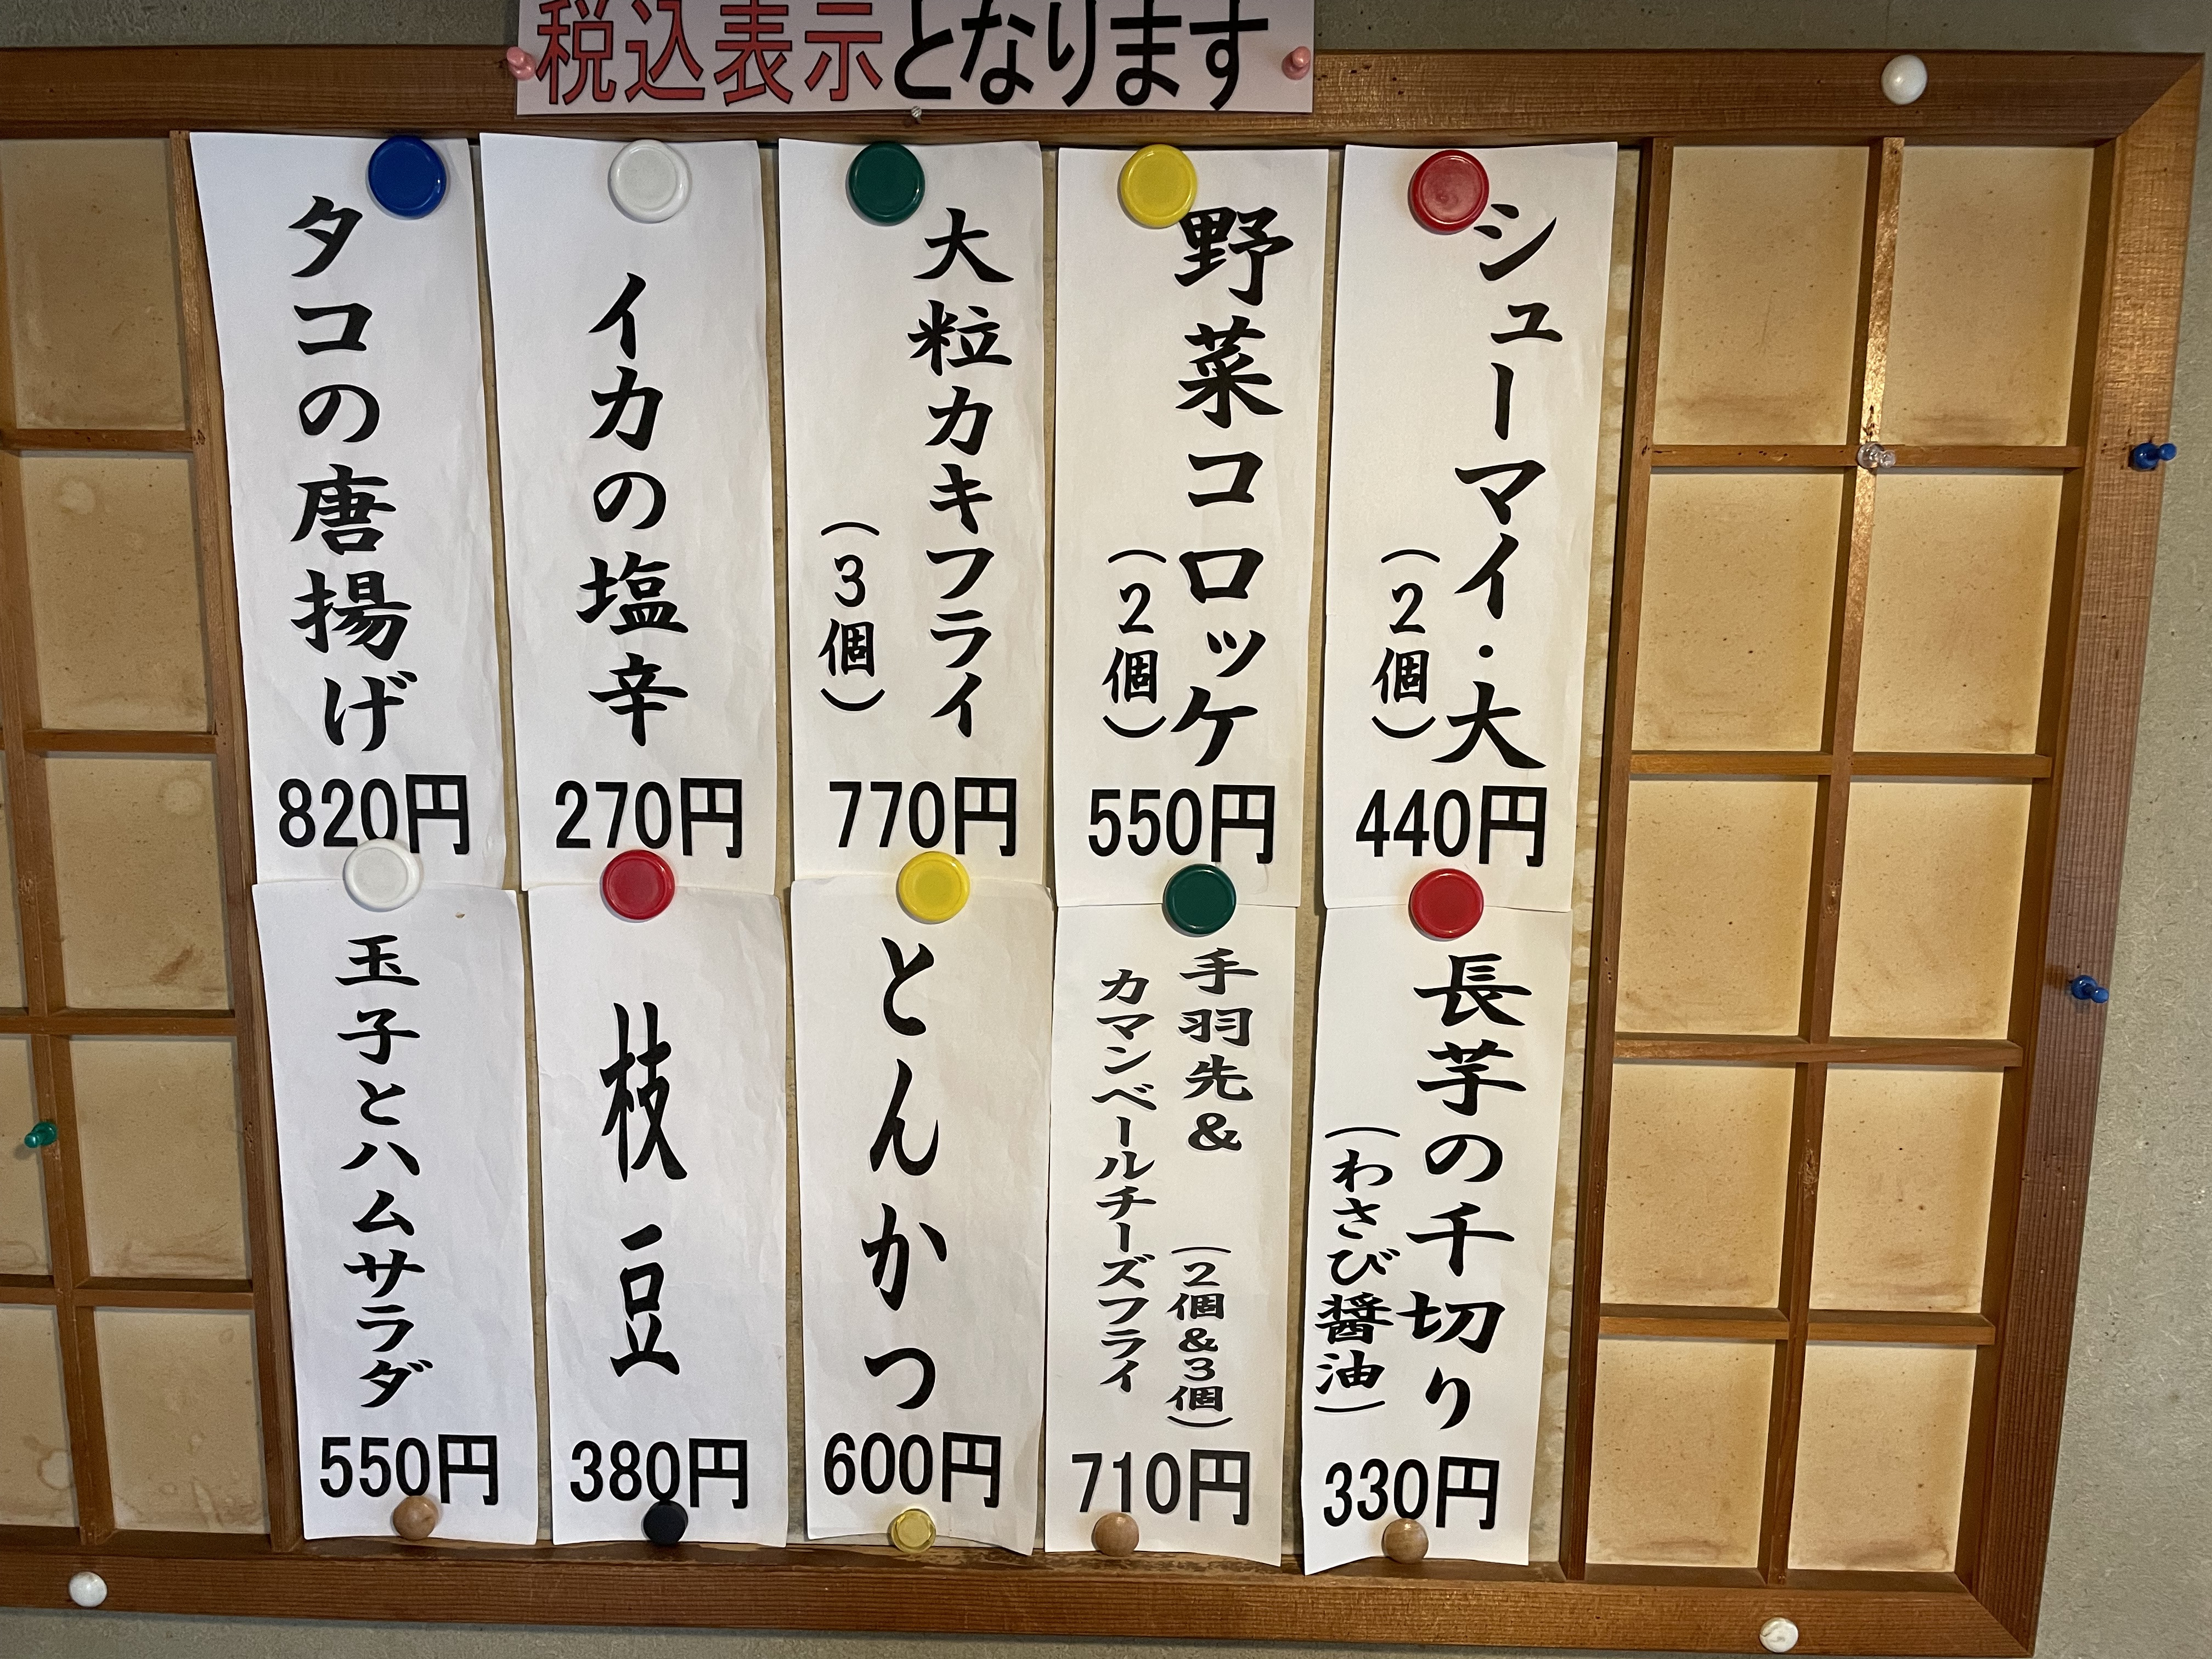 税込表示となります
シューマイ・大
（2個）
440円
野菜コロッケ
（2個）
550円
大粒カキフライ
（3個）
770円
イカの塩辛
270円
タコの唐揚げ
820円
長芋の千切り
（わさび醤油）
330円
手羽先＆
（2個＆3個）
カマンベールチーズフライ
710円
とんかつ
600円
枝豆
380円
玉子とハムサラダ
550円